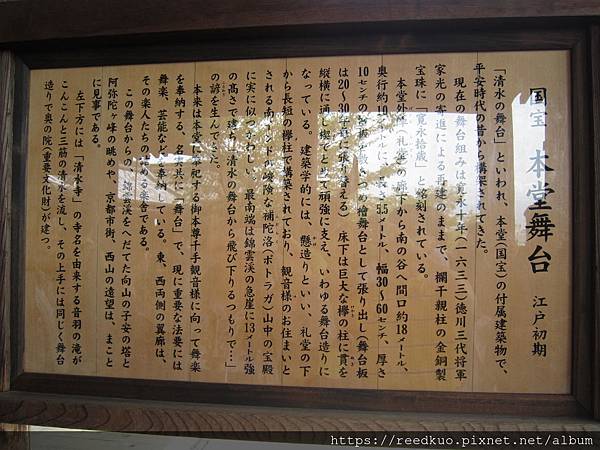 国宝 本堂舞台 江戸初期
「清水の舞台」といわれ、本堂(国宝)の付属建築物で、
平安時代の昔から構築されてきた。
現在の舞台組みは寛永十年(一六三三)徳川三代将軍
家光の寄進による再建のままで、欄干親柱の金銅製
宝珠に「寛永拾歳」と銘刻されている。
本堂外 (礼堂)の廊下から南の谷へ間口約18メートル、
奥行約10 メートルに、長 5.5メートル、幅30〜60センチ、厚さ
10センチの 檜板を敷 つめ檜舞台として張り出し(舞台板
は20〜30年毎に張り替える)床下は巨大な欅の柱に貫を
縦横に通し楔でとめて頑強に支え、いわゆる舞台造りに
なっている。建築学的には、懸造りといい、礼堂の下
から長短の欅柱で構築されており、観音様のお住まいと
される南インドの峻険な補陀洛(ポトラガ)山中の宝殿
に実に似つかわしい。最南端は錦雲渓の急崖に13メートル強
の高さで建ち、「清水の舞台から飛び下りるつもりで…」
の諺を生んできた。
本来は本堂に奉祀する御本尊千手観音様に向って舞楽
を奉納する、名実共に「舞台」で、現に重要な法要には
舞楽、芸能などを奉納している。東、西両側の翼廊は、
その楽人たちの詰める楽舎である。
この舞台からの 錦雲渓をへだてた向山の子安の塔と
阿弥陀ヶ峰の眺めや、京都市街、西山の遠望は、まこと
に見事である。
左下方には「清水寺」の寺名を由来する音羽の滝が
こんこんと三筋の清水を流し、その上手には同じく舞台
造りで奥の院(重要文化財)が建つ。
https://reedkuo.pixnet.net/album